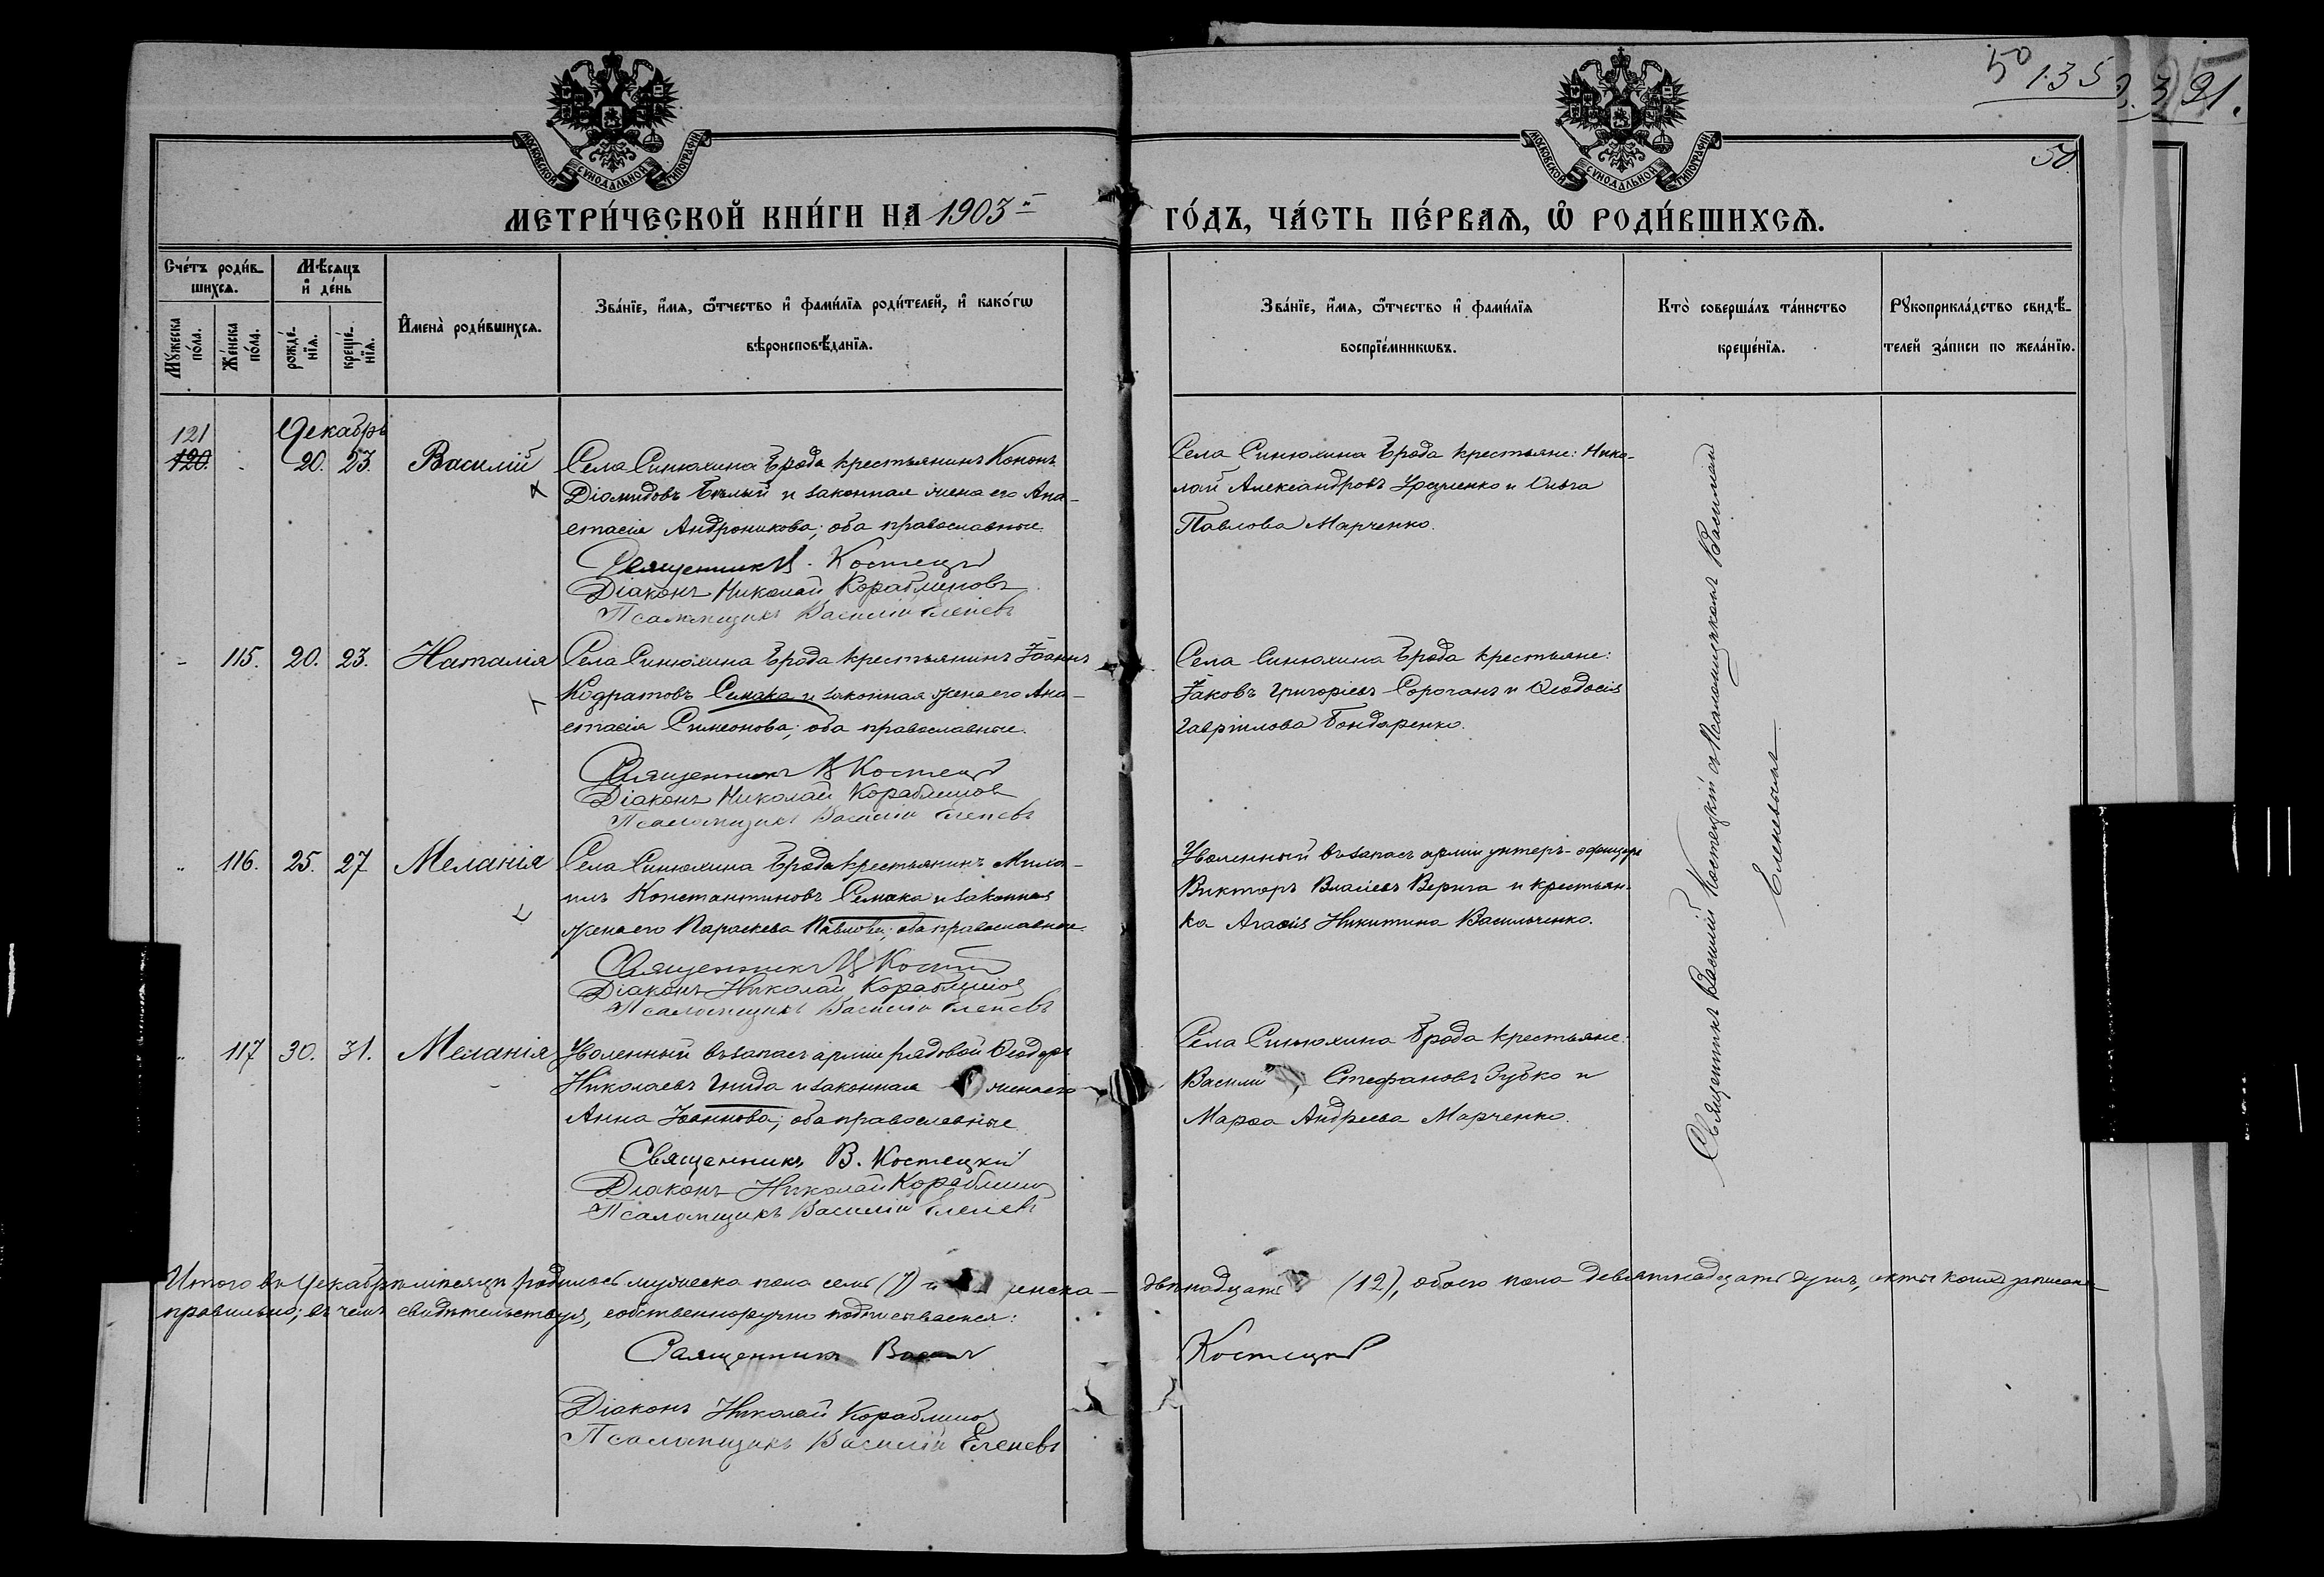 50 135
3 91.
50.
МОСКОВСКОЙ СУНОДАЛЬНОЙ ТИПОГРАФІИ
МОСКОВСКОЙ СУНОДАЛЬНОЙ ТИПОГРАФІИ
МЕТРИ́ЧЕСКОЙ КНИ́ГИ НА 1903-й
ГО́ДЪ, ЧА́СТЬ ПЕ́РВАѦ, Ѡ҆ РОДИ́ВШИХСѦ.
Сче́тъ роди́в-
шихсѧ.
Мꙋ́жеска по́ла.
Же́нска по́ла.
Мѣ́сѧцъ
и҆ де́нь
рожде́-
нїѧ.
креще́-
нїѧ.
И҆мена̀ роди́вшихсѧ.
Зва́нїе, и҆́мѧ, ѻ҆́тчество и҆ фами́лїѧ роди́телей, и҆ како́гѡ
вѣроисповѣ́данїѧ.
Зва́нїе, и҆́мѧ, ѻ҆́тчество и҆ фами́лїѧ
воспрїе́мникѡвъ.
Кто̀ соверша́лъ та́инство
креще́нїѧ.
Рꙋкоприкла́дство свидѣ́-
телей за́писи по жела́нїю.
121
Декабрь
120. 20. 23. Василій Села Синюхина Брода крестьянинъ Кононъ
Діомидовъ Бѣлый и законная жена его Ана-
стасія Андроникова; оба православные.
Священникъ В. Костецкій
Діаконъ Николай Кораблиновъ
Псаломщикъ Василій Еленевъ
Села Синюхина Брода крестьяне: Нико-
лай Александровъ и Ольга
Павлова Марченко.
115. 20. 23. Наталія Села Синюхина Брода крестьянинъ Іоаннъ
Кодратовъ Семака и законная жена его Ана-
стасія Симеонова; оба православные.
Священникъ В Костецкій
Діаконъ Николай Кораблиновъ
Псаломщикъ Василій Еленевъ
Села Синюхина Брода крестьяне:
Іаковъ Григоріевъ Сорочанъ и Ѳеодосія
Гавріилова Бондаренко.
116. 25. 27 Меланія Села Синюхина Брода крестьянинъ Миха-
илъ Константиновъ Семака и законная
жена его Параскева Павлова; оба православные.
Священникъ В Костецкій
Діаконъ Николай Кораблиновъ
Псаломщикъ Василій Еленевъ
Уволенный въ запасъ арміи унтеръ-офицеръ
Викторъ Власіевъ Верига и крестьян-
ка Агаѳія Никитина Васильченко.
117 30. 31. Меланія Уволенный въ запасъ арміи рядовой Ѳеодоръ
Николаевъ Гнида и законная жена его
Анна Іоаннова; оба православные
Священникъ В. Костецкій
Діаконъ Николай Кораблиновъ
Псаломщикъ Василій Еленевъ
Села Синюхина Брода крестьяне:
Василій Стефановъ Зубко и
Марѳа Андреева Марченко.
Священникъ Василій Костецкій съ Псаломщикомъ Василіемъ
Еленевымъ
Итого въ Декабрѣ мѣсяцѣ родилось мужеска пола семь (7) и женска- двѣнадцать (12), обоего пола девятнадцать душъ, акты коихъ записаны
правильно; въ чемъ свидѣтельствуя, собственноручно подписываемся:
Священникъ Василій Костецкій
Діаконъ Николай Кораблиновъ
Псаломщикъ Василій Еленевъ